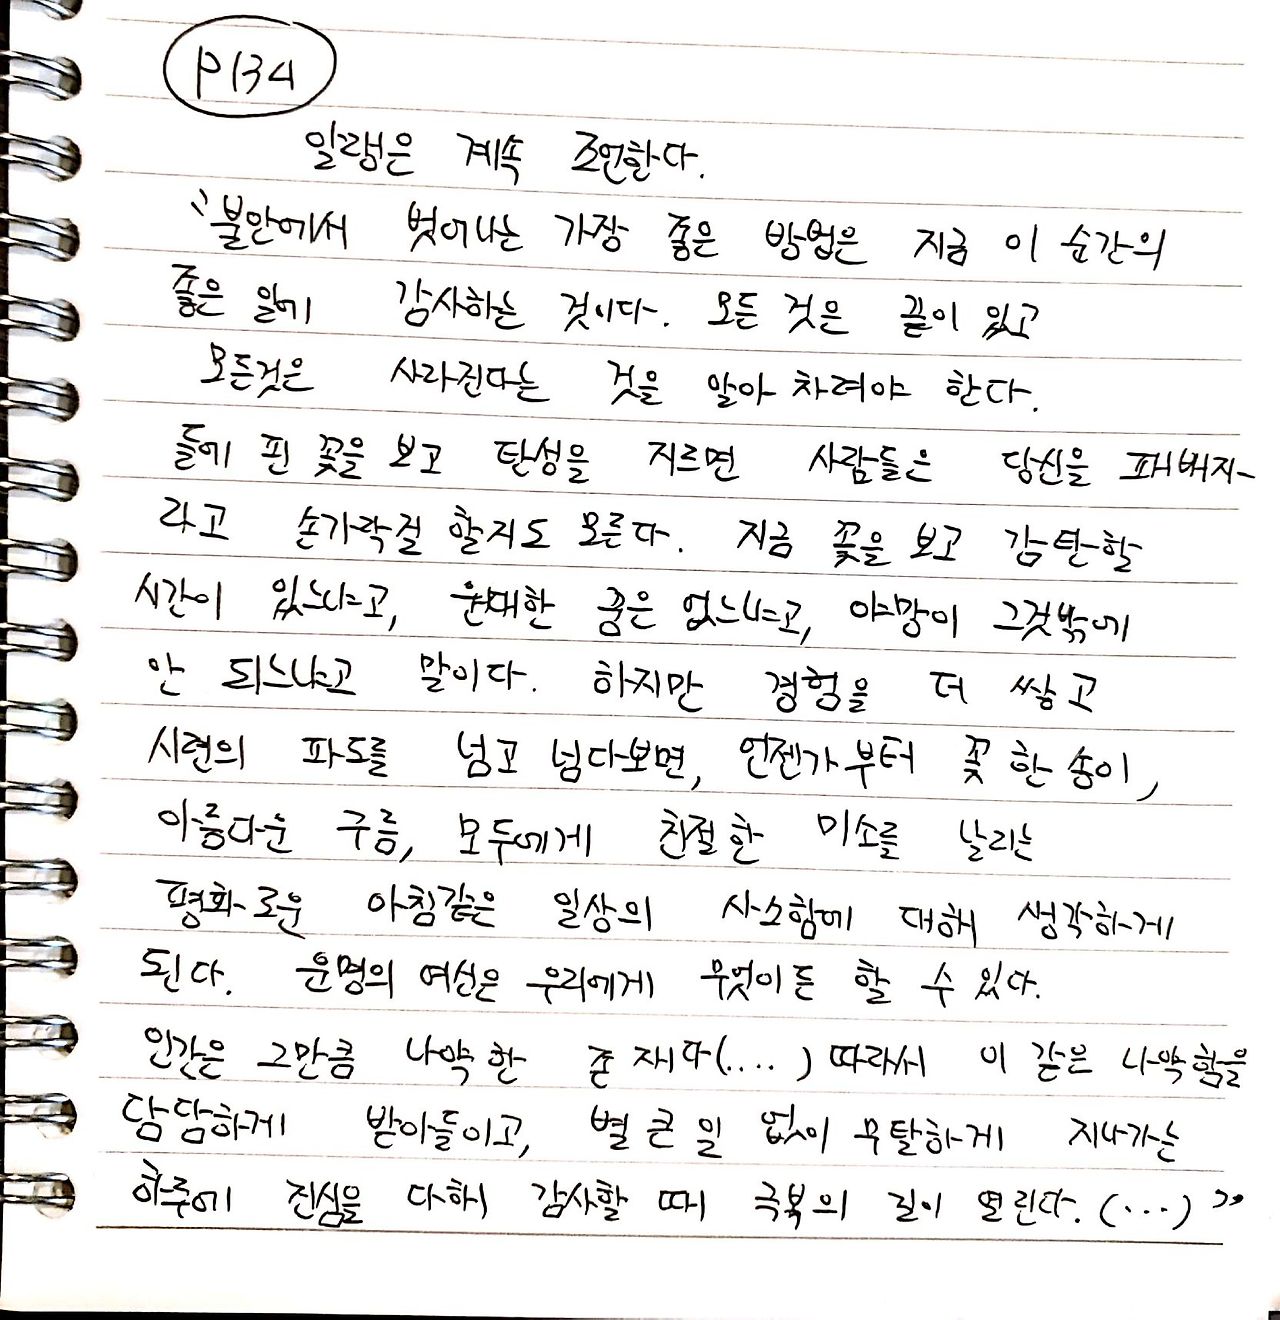 P134
일랭은 계속 조언한다.
"불안에서 벗어나는 가장 좋은 방법은 지금 이 순간의
좋은 일에 감사하는 것이다. 모든 것은 끝이 있고
모든것은 사라진다는 것을 알아 차려야 한다.
들에 핀 꽃을 보고 탄성을 지르면 사람들은 당신을 패배자
라고 손가락질 할지도 모른다. 지금 꽃을 보고 감탄할
시간이 있느냐고, 원대한 꿈은 없느냐고, 야망이 그것밖에
안 되느냐고 말이다. 하지만 경험을 더 쌓고
시련의 파도를 넘고 넘다보면, 언젠가부터 꽃 한송이,
아름다운 구름, 모두에게 친절한 미소를 날리는
평화로운 아침같은 일상의 사소함에 대해 생각하게
된다. 운명의 여신은 우리에게 무엇이든 할 수 있다.
인간은 그만큼 나약한 존재다(....) 따라서 이 같은 나약함을
담담하게 받아들이고, 별 큰 일 없이 무탈하게 지나가는
하루에 진심을 다해 감사할 때 극복의 길이 열린다. (...)"